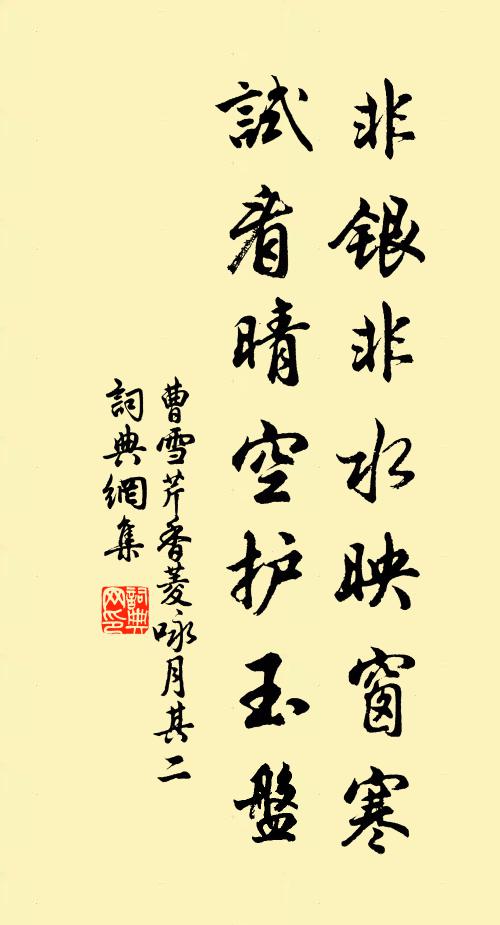 非銀非水映窗寒
試看晴空护玉盤
曹雪芹香菱咏月其二
詞典網集
詞典网印